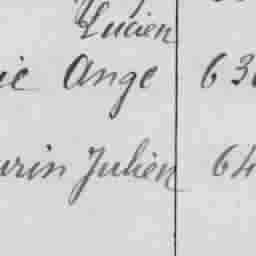 Lucien
ie Ange 63
urin Julien 64